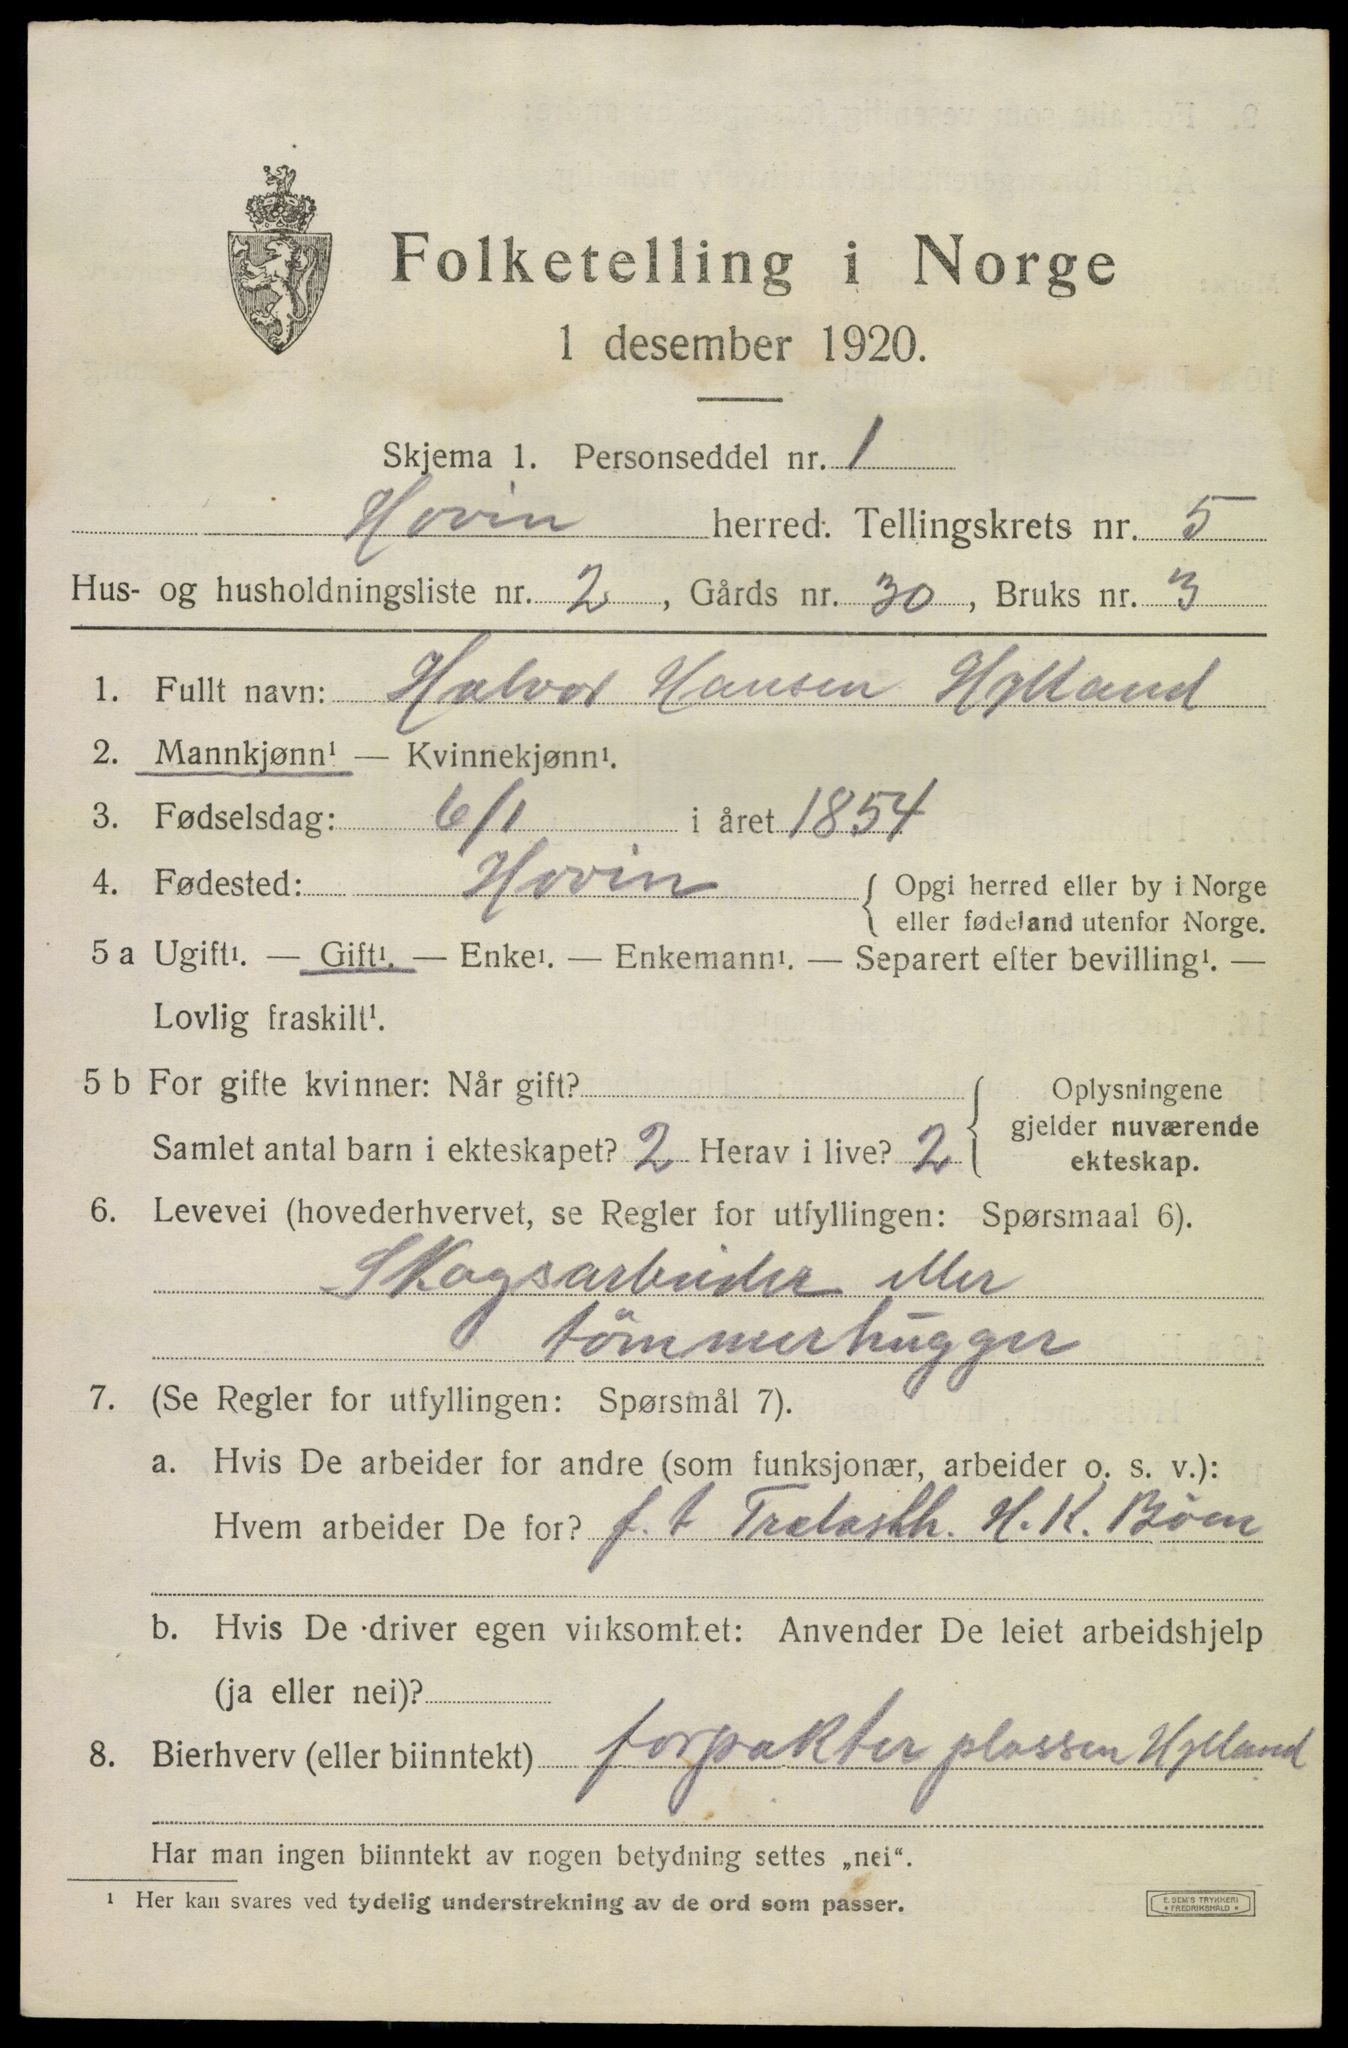 Folketelling i Norge
1 desember 1920.
Skjema 1. Personseddel nr. 1
Hovin herred. Tellingskrets nr. 5
Hus- og husholdningsliste nr. 2, Gårds nr. 30, Bruks nr. 3
1. Fullt navn: Halvor Hansen Hylland
2. Mannkjønn¹ — Kvinnekjønn¹.
3. Fødselsdag: 6/1 i året 1854
4. Fødested: Hovin { Opgi herred eller by i Norge
eller fødeland utenfor Norge.
5 a Ugift¹. — Gift¹. — Enke¹. — Enkemann¹. — Separert efter bevilling¹. —
Lovlig fraskilt¹.
5 b For gifte kvinner: Når gift?
Samlet antal barn i ekteskapet? 2 Herav i live? 2
{ Oplysningene
gjelder nuværende
ekteskap.
6. Levevei (hovederhvervet, se Regler for utfyllingen: Spørsmaal 6).
Skogsarbeider eller
tömmerhugger
7. (Se Regler for utfyllingen: Spørsmål 7).
a. Hvis De arbeider for andre (som funksjonær, arbeider o. s. v.):
Hvem arbeider De for? f. t Trelasth. H. K. Bøen
b. Hvis De driver egen virksomhet: Anvender De leiet arbeidshjelp
(ja eller nei)?
8. Bierhverv (eller biinntekt) forpakter plassen Hylland
Har man ingen biinntekt av nogen betydning settes „nei“.
¹ Her kan svares ved tydelig understrekning av de ord som passer.
E. SEM'S TRYKKERI
* FREDRIKSHALD *